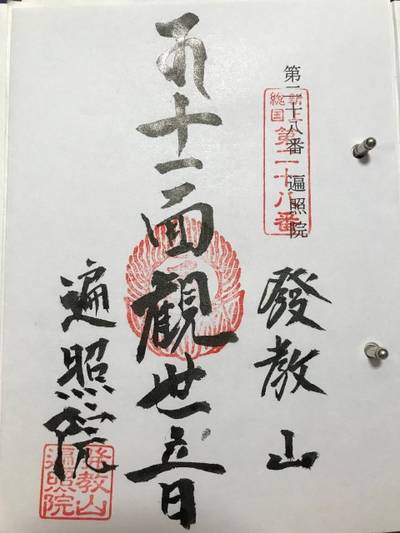 第二十八番 遍照院
新上
総国
第二十八番
發教山
十一面觀世音
遍照院
發教山
遍照院